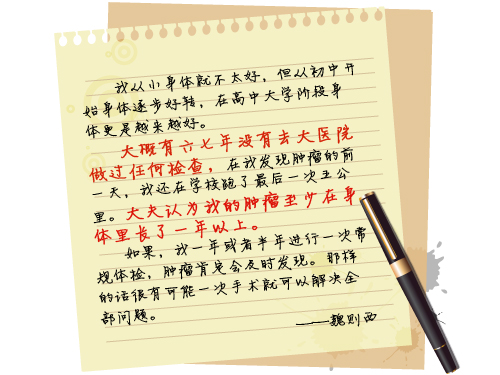 我从小身体就不太好，但从初中开
始身体逐步好转，在高中大学阶段身
体更是越来越好。
大概有六七年没有去大医院
做过任何检查，在我发现肿瘤的前
一天，我还在学校跑了最后一次五公
里。大夫认为我的肿瘤至少在身
体里长了一年以上。
如果，我一年或者半年进行一次常
规体检，肿瘤肯定会及时发现。那样
的话很有可能一次手术就可以解决全
部问题。
——魏则西